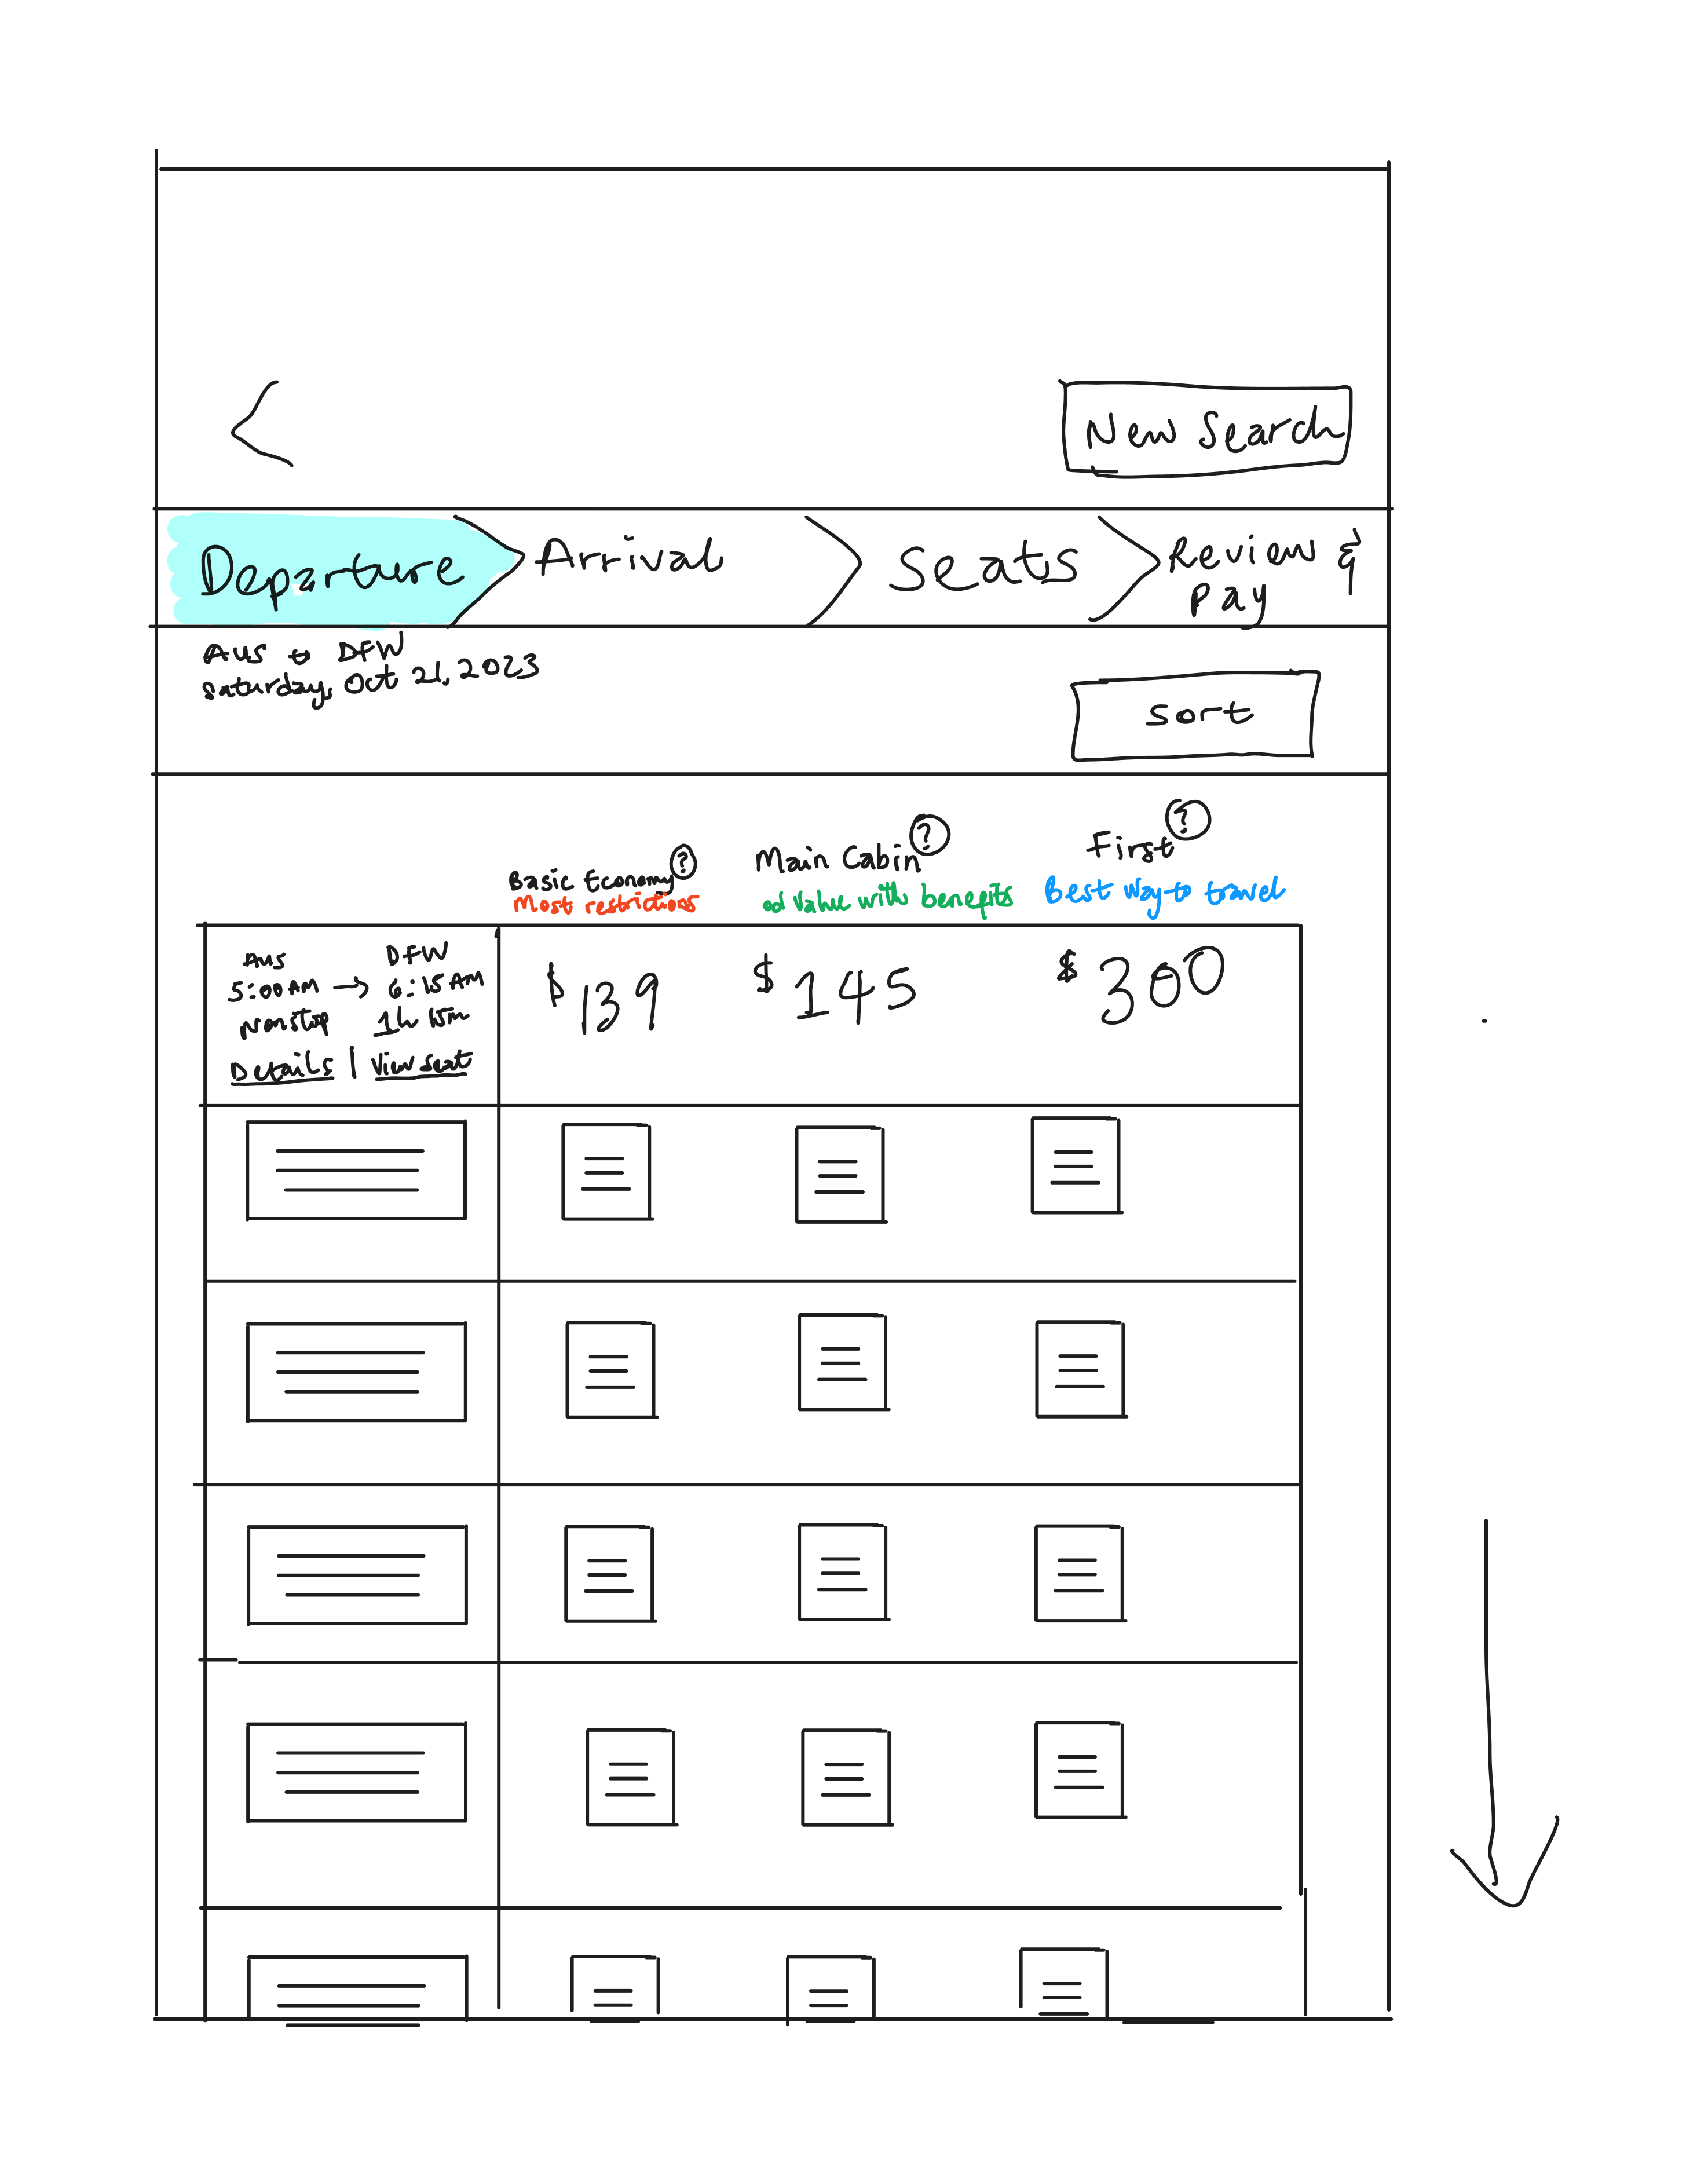 New Search
Departure
Arrival
Seats
Review &
Pay
AUS to DFW
Saturday, Oct 21, 2023
sort
Basic Economy ?
Most restrictions
Main Cabin ?
od Value with benefits
First ?
Best Way to travel
AUS DFW
5:00AM → 6:15AM
Nonstop 1h 15m
Details | View Seat
$139
$145
$300